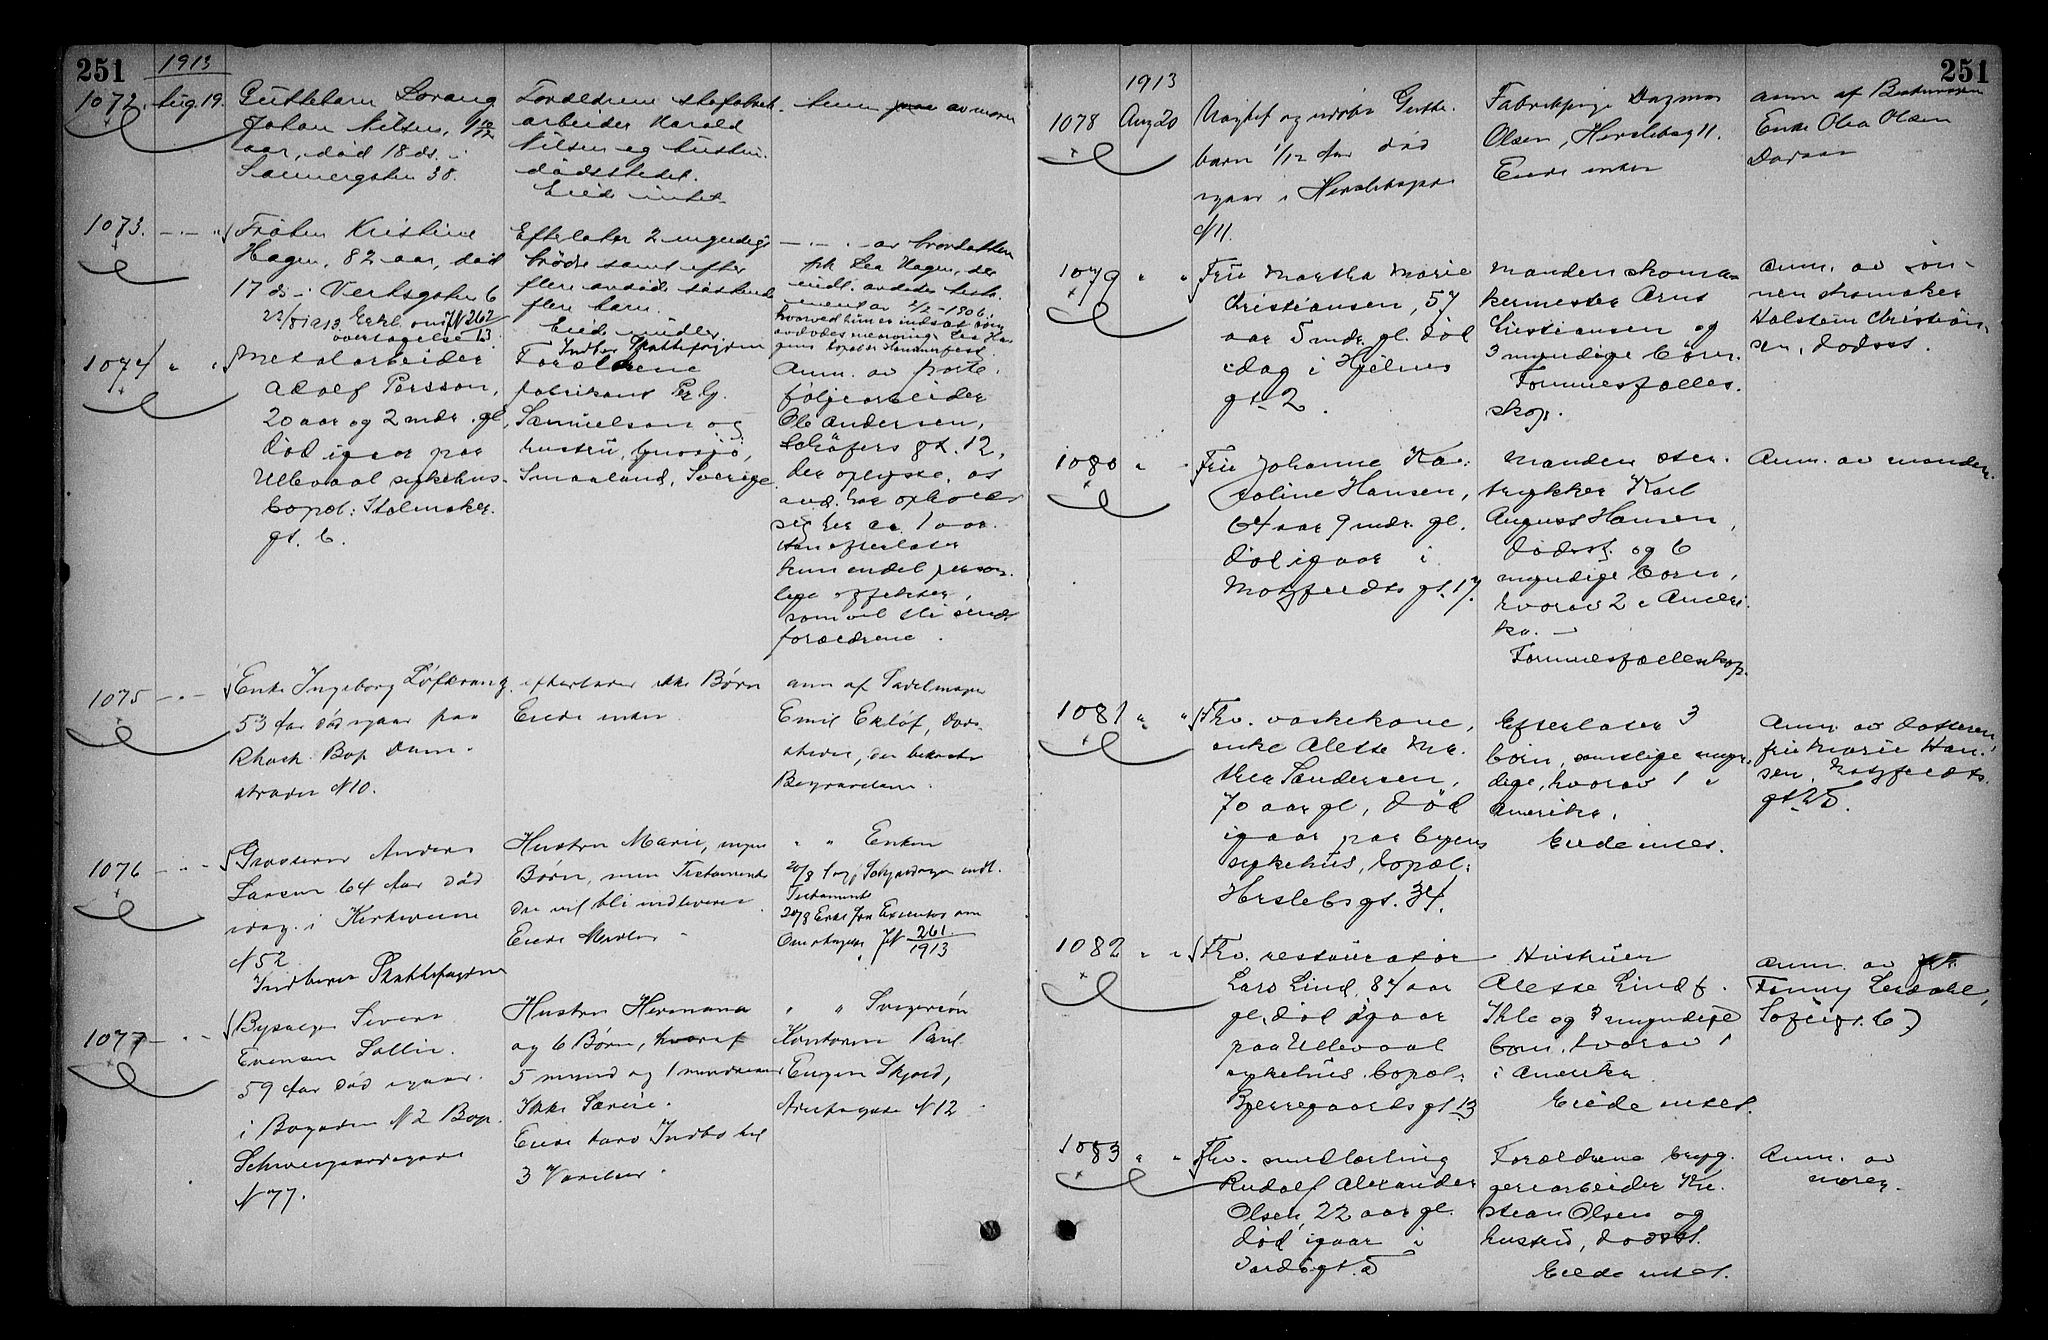 251
1913
1072. Aug 19.
Guttebarn Lorang
Johan Nilsen, 1 10/12
aar, død 18 ds. i
38.
Forældrene
arbeider Harald
Nilsen og hustru.
dødsstedet.
Eiede intet.
av moren
1073. — " — "
Frøken Kristine
Hagen, 82 aar, død
17 ds. i Verksgaten 6
22/8 1913. Erkl. om JN 262/13
overtagelse
Efterlater 2 myndige
brødre samt efter
flere avdøde søskende
flere barn.
Eiede midler.
Indber. Skattefogden
— " — av brordatter
frk Lea Hagen, der
indl. avdødes testa-
ment av 2/2 - 1906.
hvorved hun er indsat som
1074 " "
Metalarbeider
Adolf Persson,
20 aar og 2 mdr. gl,
død igaar paa
Ullevaal sykehus.
bopæl: Stolmaker.
gt. 6.
Forældrene
fabrikant Per G.
Samuelson og
hustru, Gnosjö,
Smaaland, Sverige
Anm. av
følgearbeider
Ole Andersen,
Schäfers gt. 12,
der oplyste, at
avd. har opholdt
sig her ca. 1 aar.
Han efterlater
kun endel person-
lige effekter,
som vil bli sendt
forældrene.
1075 — " —
Enke Ingeborg Löfkrang
53 Aar død igaar paa
Rhosh. Bop Dam-
stræde N 10.
efterlater ikke Børn
Eiede intet.
anm af Sadelmager
Emil Eklöf, Døds-
stedet, der bekoster
Begravelsen.
1076 — " —
Grosserer Anders
Larsen 64 Aar død
idag i Kirkeveien
N 52
Indberet Skattefogden
Hustru Marie, ingen
Børn, men Testament
der vil bli indleveret.
Eiede Midler
" " Enken
20/8 indl.
Testament
20/8 Erkl fra Executor om
Overtagelse JN 261/1913
1077 — " —
Sivert
Evensen Sollie.
59 Aar død igaar.
i Bogaden N 2 Bop.
Schweigaardsgade
N 77.
Hustru Hermana
og 6 Børn, hvoraf
5 mynd og 1 mindreaar
Ikke Særeie.
Eiede kun Indbo til
3 Værelser.
" " Svigersøn
Kontorist Paul
Eugen Skjold,
N 12
251
1913
1078 Aug 20
Vagtet og udøbt Gutte-
barn 1/12 Aar død
igaar i Herslebsgt
N 11.
Fabrikpige Dagmar
Olsen, Herslebsg 11.
Eiede intet
anm af Bestemoren
Enke Olea Olsen
Dødsst
1079 " "
Fru Martha Marie
Christiansen, 57
aar 5 mdr. gl. død
idag i Hjelms
gt. 2.
Manden skoma-
kermester Arnt
Christiansen og
3 myndige børn.
Formuesfælles-
skap.
Anm. av søn-
nen skomaker
Halstein Christian-
sen, dødsst.
1080 " "
Fru Johanne Ka-
roline Hansen,
64 aar 9 mdr. gl.
død igaar i
Motzfeldts gt. 17.
Manden sten-
trykker Karl
August Hansen,
dødsst. og 6
myndige børn,
hvorav 2 i Ameri-
ka. —
Formuesfællesskap.
Anm. av manden.
1081 " "
Fhv. vaskekone,
enke Alette Ma-
thea Sandersen,
70 aar gl, død
igaar paa byens
sykehus, bopæl:
Herslebs gt. 34.
Efterlater 3
børn, samtlige myn-
dige, hvorav 1 i
Amerika.
Eiede intet.
Anm. av datteren,
fru Marie Han-
sen, Motzfeldts
gt. 25.
1082 " "
Fhv. restauratør
Lars Lind, 84 aar
gl, død igaar
paa Ullevaal
sykehus. bopæl:
Bjerregaards gt. 13
Hustruen
Alette Lind f.
Ihle og 3 myndige
børn, hvorav 1
i Amerika
Eiede intet.
Anm. av
Fanny
Sofies gt. 6
1083 " "
Fhv. smedlærling
Rudolf Alexander
Olsen, 22 aar gl.
død igaar i
gt. 5
Forældrene bryg-
geriarbeider Kri-
stian Olsen og
hustru, dødsst.
Eiede intet.
Anm. av
moren.